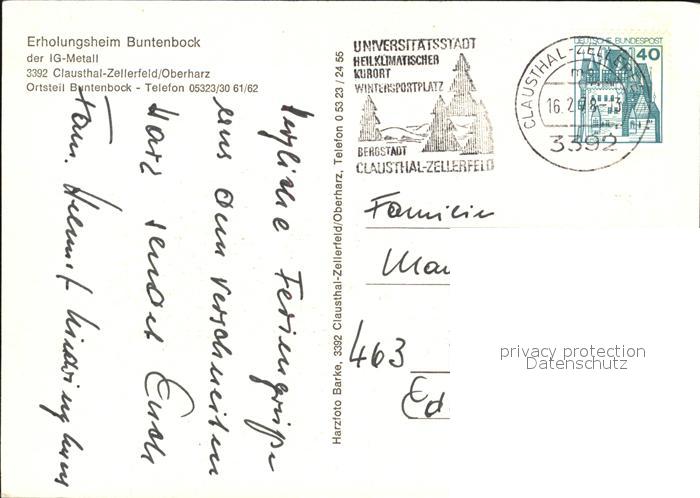 Erholungsheim Buntenbock
der IG-Metall
3392 Clausthal-Zellerfeld/Oberharz
Ortsteil Buntenbock - Telefon 05323/30 61/62
Herzliche Feriengrüße
aus dem verschneiten
Harz sendet Euch
Fam. Helmut
Harzfoto Barke, 3392 Clausthal-Zellerfeld/Oberharz, Telefon 0 53 23 / 24 55
UNIVERSITÄTSSTADT
HEILKLIMATISCHER
KURORT
WINTERSPORTPLATZ
BERGSTADT
CLAUSTHAL-ZELLERFELD
CLAUSTHAL-ZELLERFELD
16.2.78-13
3392
DEUTSCHE BUNDESPOST
40
Familie
463
privacy protection
Datenschutz